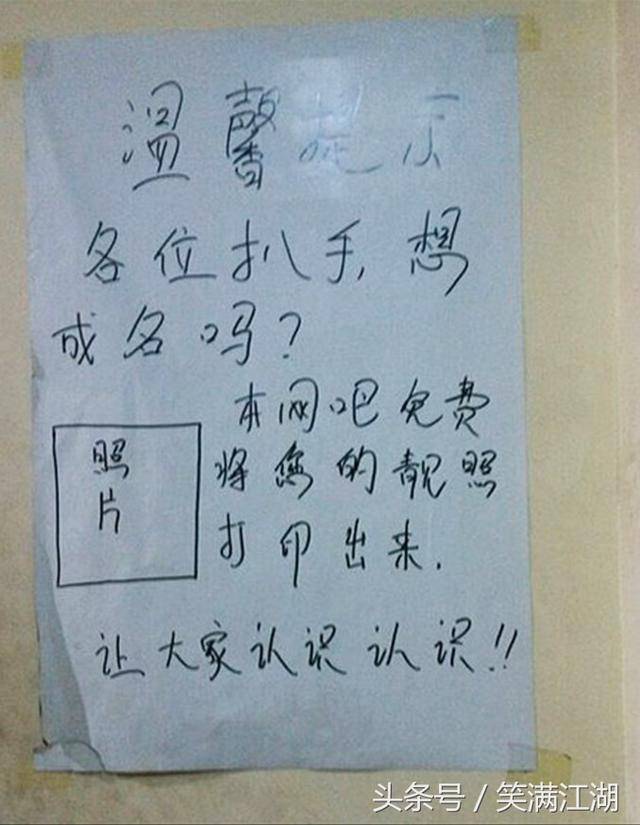 温馨提示
各位扒手,想
成名吗?
本网吧免费
照片
将您的靓照
打印出来.
让大家认识认识!!
头条号/笑满江湖